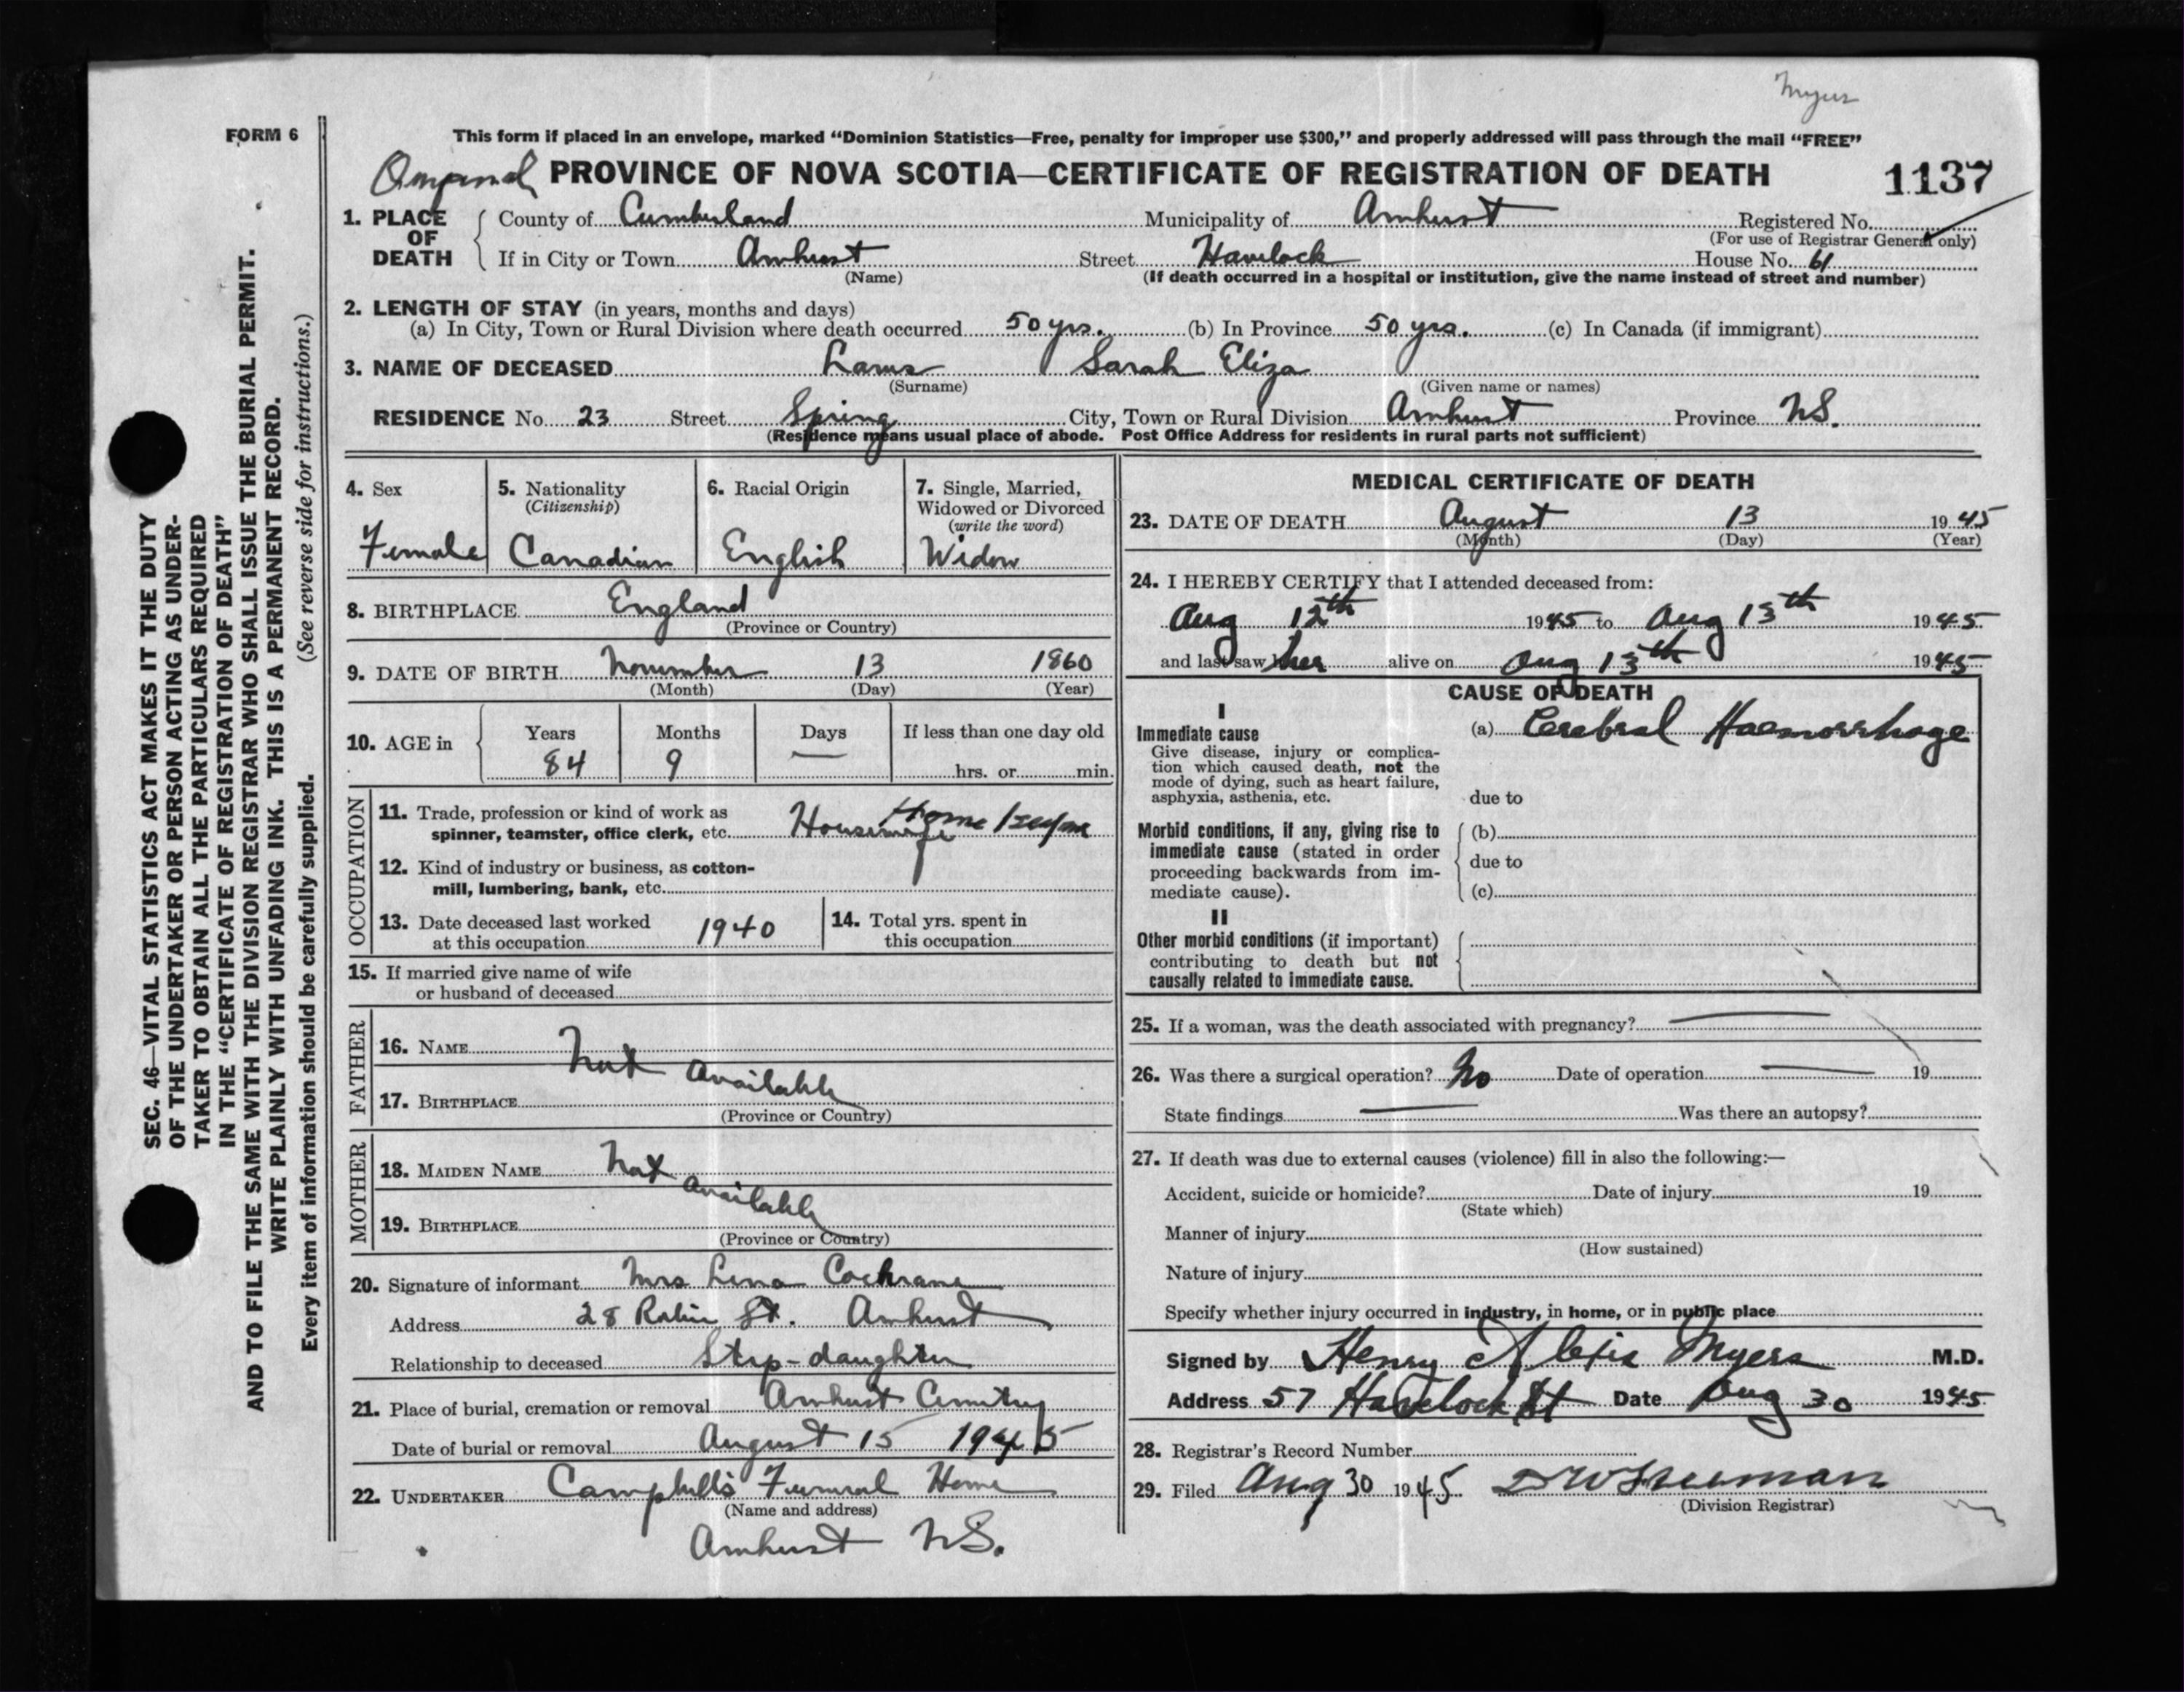 Myers
FORM 6
This form if placed in an envelope, marked “Dominion Statistics—Free, penalty for improper use $300,” and properly addressed will pass through the mail “FREE”
PROVINCE OF NOVA SCOTIA—CERTIFICATE OF REGISTRATION OF DEATH 1137
1. PLACE OF DEATH County of Cumberland Municipality of Amherst Registered No.
(For use of Registrar General only)
If in City or Town Amherst Street Havelock House No. 61
(Name) (If death occurred in a hospital or institution, give the name instead of street and number)
2. LENGTH OF STAY (in years, months and days)
(a) In City, Town or Rural Division where death occurred 50 yrs. (b) In Province 50 yrs. (c) In Canada (if immigrant)
3. NAME OF DECEASED Sarah Eliza
(Surname) (Given name or names)
RESIDENCE No. 23 Street Spring City, Town or Rural Division Amherst Province N.S.
(Residence means usual place of abode. Post Office Address for residents in rural parts not sufficient)
4. Sex
Female
5. Nationality
(Citizenship)
Canadian
6. Racial Origin
English
7. Single, Married,
Widowed or Divorced
(write the word)
Widow
8. BIRTHPLACE England
(Province or Country)
9. DATE OF BIRTH November 13 1860
(Month) (Day) (Year)
10. AGE in Years Months Days If less than one day old
84 9 — hrs. or min.
OCCUPATION
11. Trade, profession or kind of work as
spinner, teamster, office clerk, etc. Housewife Home
12. Kind of industry or business, as cotton-
mill, lumbering, bank, etc.
13. Date deceased last worked
at this occupation 1940
14. Total yrs. spent in
this occupation
15. If married give name of wife
or husband of deceased
FATHER
16. NAME
Not Available
17. BIRTHPLACE
(Province or Country)
MOTHER
18. MAIDEN NAME Not
Available
19. BIRTHPLACE
(Province or Country)
20. Signature of informant Mrs Lena Cochrane
Address 28 Robie St. Amherst
Relationship to deceased Step-daughter
21. Place of burial, cremation or removal Amherst Cemetery
Date of burial or removal August 15 1945
22. UNDERTAKER Campbell's Funeral Home
(Name and address)
Amherst N.S.
MEDICAL CERTIFICATE OF DEATH
23. DATE OF DEATH August 13 1945
(Month) (Day) (Year)
24. I HEREBY CERTIFY that I attended deceased from:
Aug 12th 1945 to Aug 13th 1945
and last saw her alive on Aug 13th 1945
CAUSE OF DEATH
I
Immediate cause
Give disease, injury or complica-
tion which caused death, not the
mode of dying, such as heart failure,
asphyxia, asthenia, etc.
(a) Cerebral Haemorrhage
due to
Morbid conditions, if any, giving rise to
immediate cause (stated in order
proceeding backwards from im-
mediate cause).
(b)
due to
(c)
II
Other morbid conditions (if important)
contributing to death but not
causally related to immediate cause.
25. If a woman, was the death associated with pregnancy? —
26. Was there a surgical operation? No Date of operation — 19
State findings — Was there an autopsy?
27. If death was due to external causes (violence) fill in also the following:—
Accident, suicide or homicide? Date of injury 19
(State which)
Manner of injury
(How sustained)
Nature of injury
Specify whether injury occurred in industry, in home, or in public place
Signed by Henry Alexis Myers M.D.
Address 57 Havelock St Date Aug 30 1945
28. Registrar's Record Number
29. Filed Aug 30 1945
(Division Registrar)
SEC. 46—VITAL STATISTICS ACT MAKES IT THE DUTY
OF THE UNDERTAKER OR PERSON ACTING AS UNDER-
TAKER TO OBTAIN ALL THE PARTICULARS REQUIRED
IN THE “CERTIFICATE OF REGISTRATION OF DEATH”
AND TO FILE THE SAME WITH THE DIVISION REGISTRAR WHO SHALL ISSUE THE BURIAL PERMIT.
WRITE PLAINLY WITH UNFADING INK. THIS IS A PERMANENT RECORD.
Every item of information should be carefully supplied. (See reverse side for instructions.)